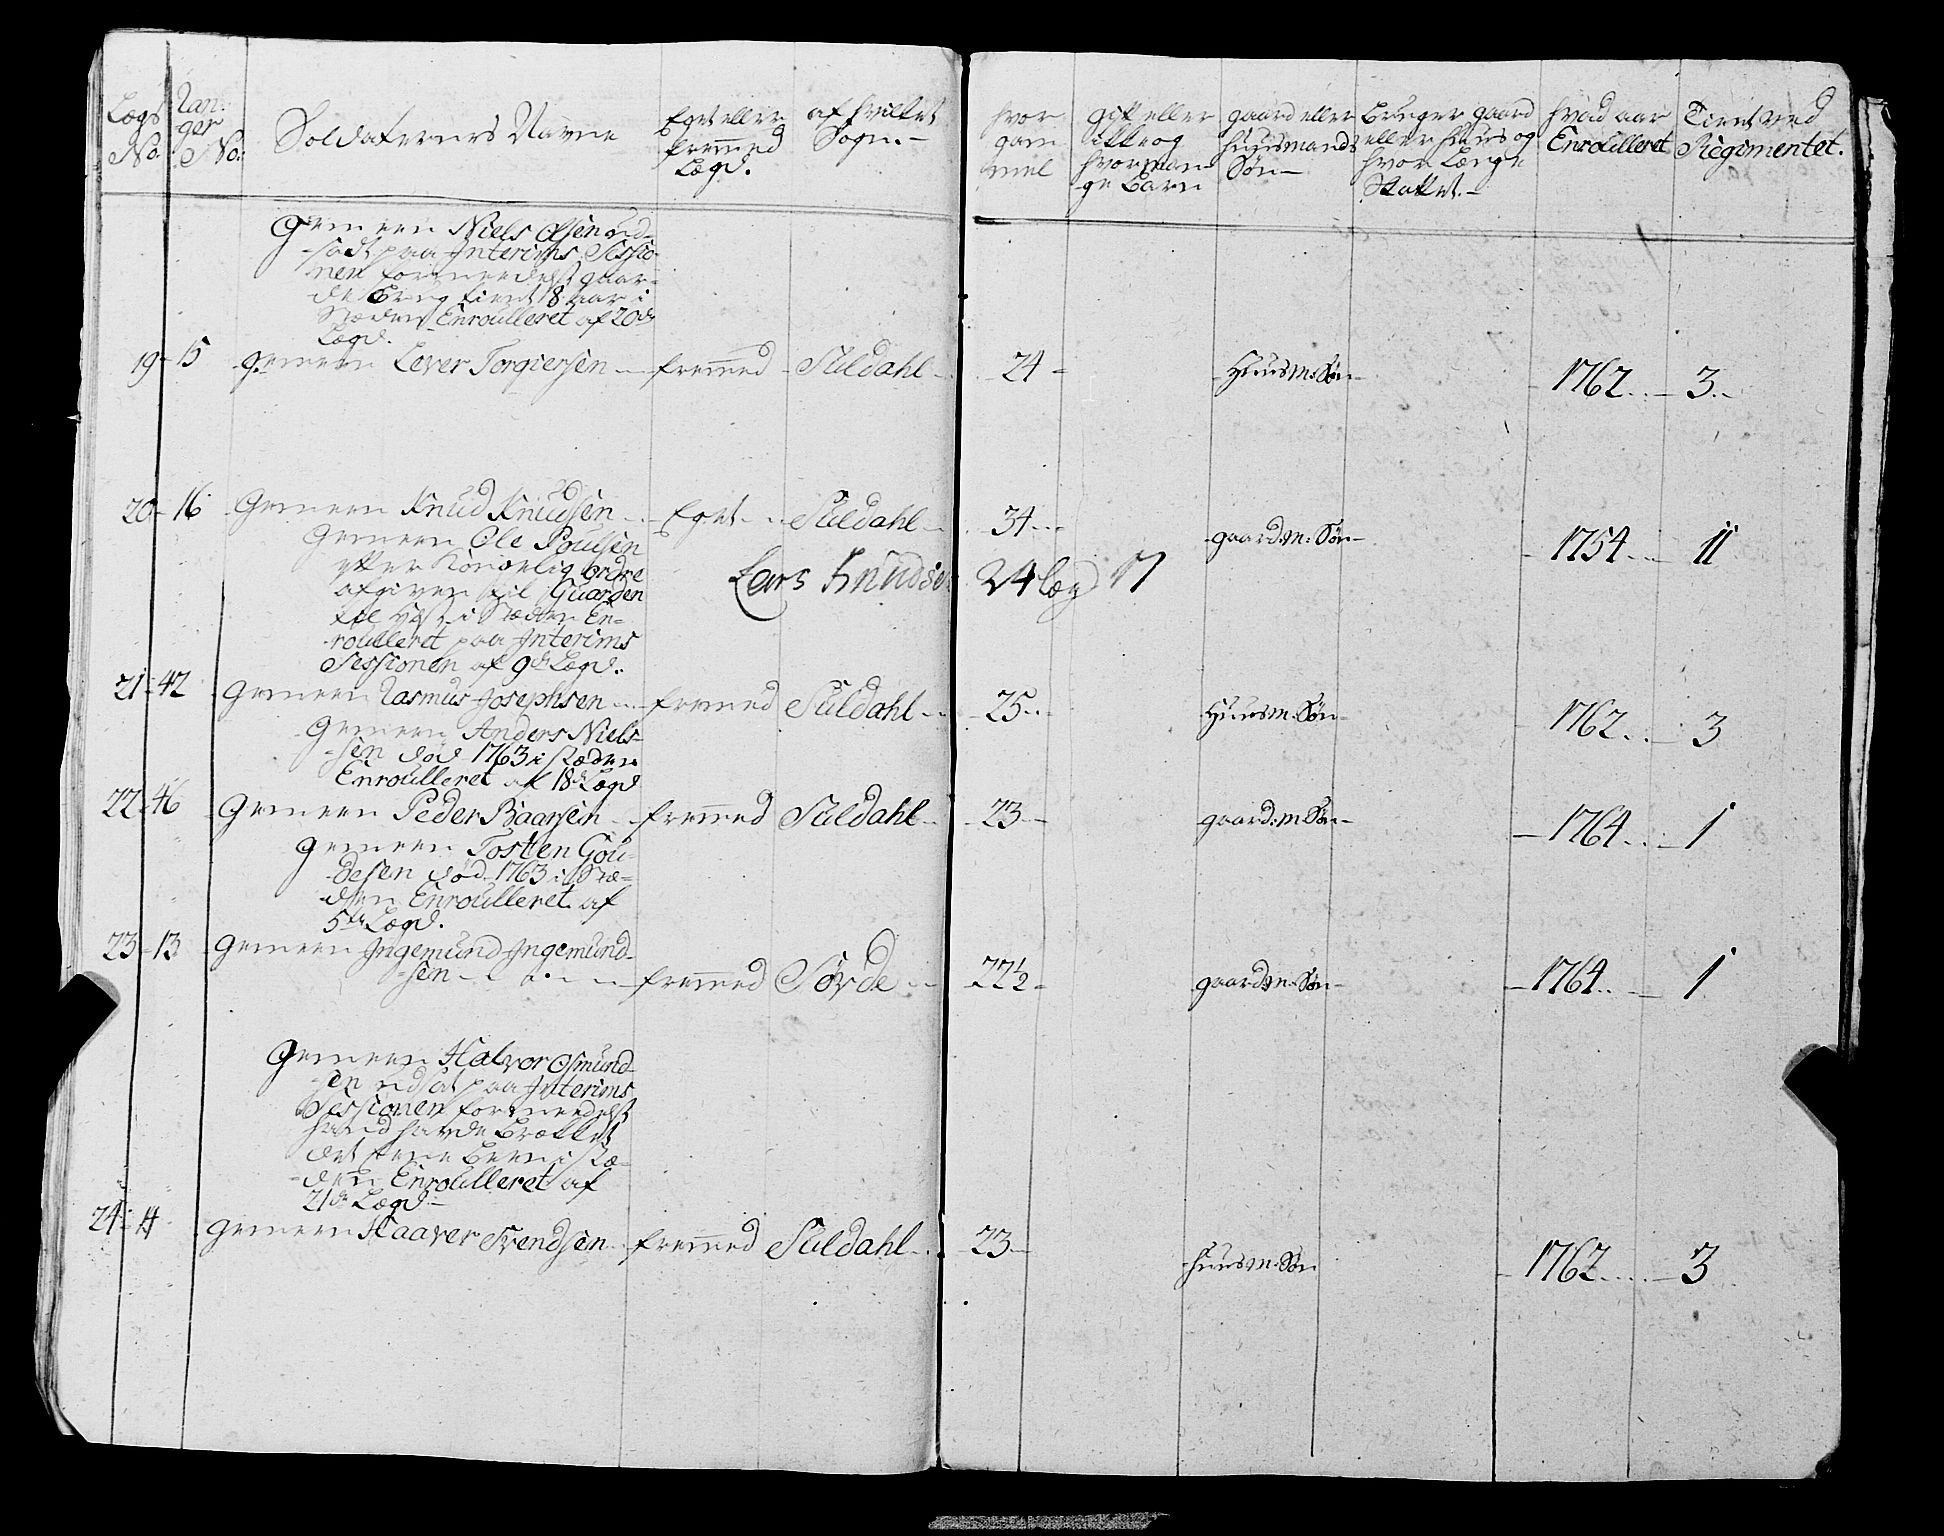 Lægs No.
Ran-
ger
No:
Soldaternes Navne
Eget eller
fremmed
Lægd.
af hvilket
Sogn.
hvor
gam
mel
gift eller
ikke og
hvor man-
ge Børn
gaard eller
Huusmands
Søn
Bruger gaard
eller Huus og
hvor Længe
Hvad aar
Enroulleret
Tient ved
Regimentet.
Gemeen Niels Olsen ud-
sadt paa Interims Sessio-
nen formedelst gaar-
de Brug tient 18 aar i
Stæden Enroulleret af 20de
Lægd.
19 - 15 gemeen Lever Torgiersen fremmed Suldahl 24 Huusm: Søn 1762 3
20 - 16 Gemeen Knud Knudsen Eget Suldahl 34 gaard: m: Søn 1754 11
Gemeen Ole Poulsen
efter Kongelig ordre
afgiven til Guarden
til Hæst i Stæden En-
roulleret paa Interims
Sessionen af 9de Lægd.
Lars Knudsen 24 læg 17
21 - 42 Gemeen Rasmus Josephsen fremmed Suldahl 25 Huusm. Søn 1762 3
Gemeen Anders Niels-
sen død 1763 i Stæden
Enroulleret af 18de Lægd
22 - 46 Gemeen Peder Baarsen fremmed Suldahl 23 gaard: m. Søn 1764 1
Gemeen Tosten Gou-
desen død 1763 i Stæ-
den Enroulleret af
5te Lægd.
23 - 13 Gemeen Ingemund Ingemund-
sen fremmed Søvde 22 1/2 gaardm. Søn 1764 1
Gemeen Halvor Osmund-
sen udsat paa Interims
Sessionen formedelst
hand havde Brækket
det eene Been i Stæ-
den Enroulleret af
21de Lægd
24 - 14 Gemeen Haaver Svendsen fremmed Suldahl 23 Huusm. Søn 1762 3